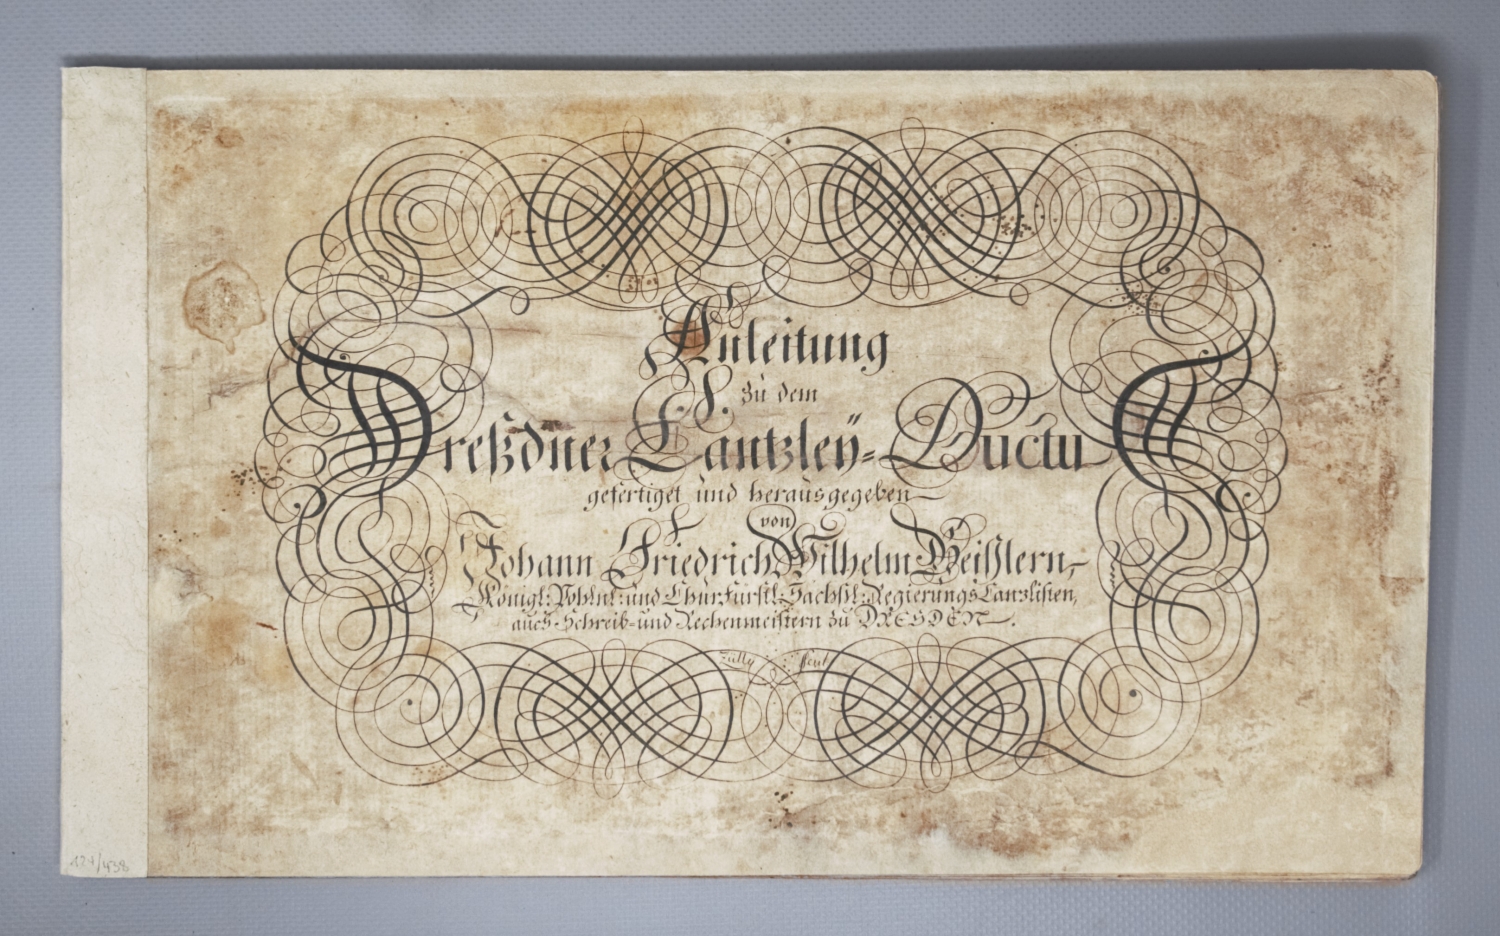 Anleitung
zu dem
Dreßdner Cantzleÿ=Ductu
gefertiget und herausgegeben
von
Johann Friedrich Wilhelm Weißlern,
Königl: Pohln: und ChurFürstl: Sächsl: Regierungs Canzlisten,
auch Schreib= und Rechenmeistern zu DRESDEN.